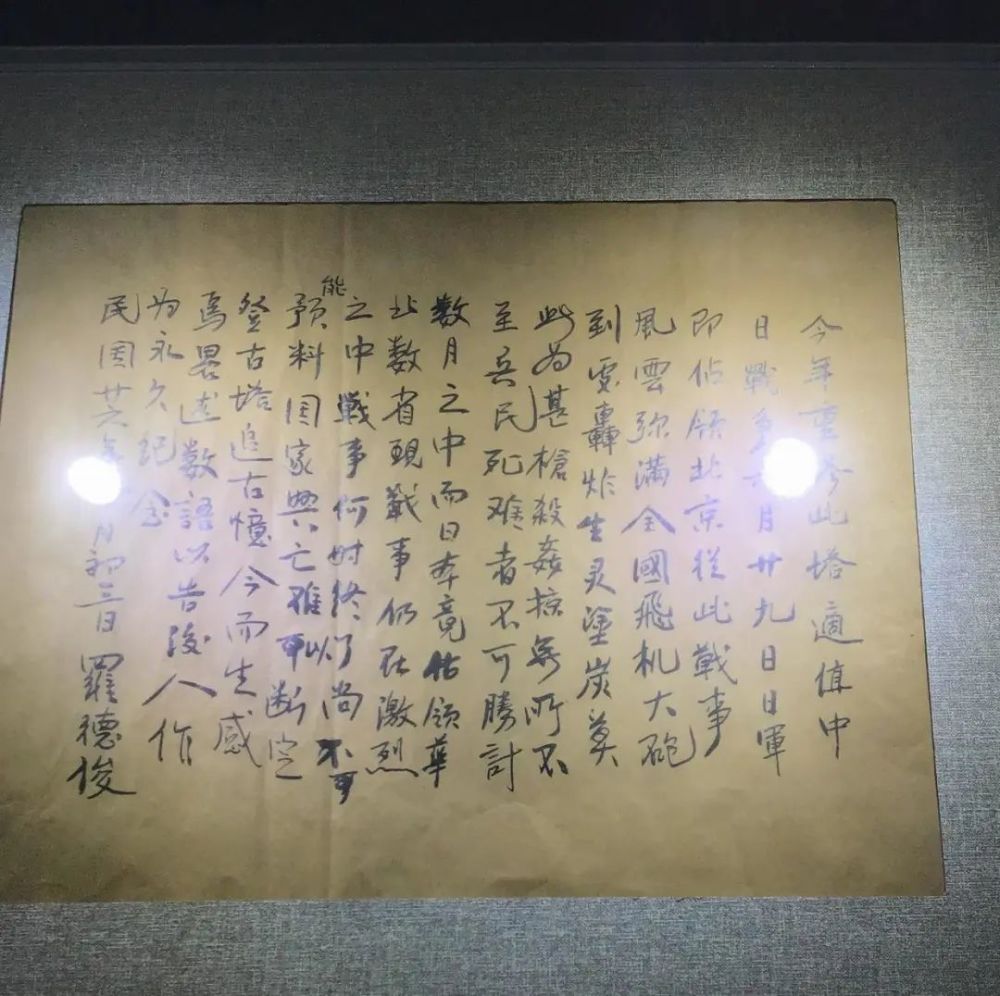 今年重修此塔適值中
日戰爭六月廿九日日軍
即佔领北京從此戰事
風雲弥満全國飛机大砲
到處轟炸生灵塗炭莫
此为甚槍殺姦掠無所不
至兵民死难者不可勝計
数月之中而日本竟佔領華
北数省現戰事仍在激烈
之中戰事何时終了尚不可
能
预料国家興亡难以断定
登古塔追古憶今而生感
焉畧述数語以告後人作
为永久纪念
民国廿六年 月初三日羅德俊